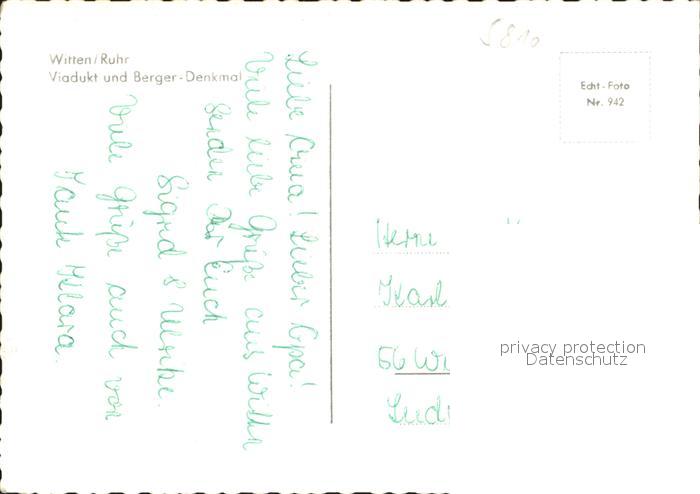 Witten/Ruhr
Viadukt und Berger-Denkmal
Echt-Foto
Nr. 942
Liebe Oma! Lieber Opa!
Viele liebe Grüße aus Witten
senden Euch
Sigrid & Ulrike.
Viele Grüße auch von
Tante Klara.
Herrn
Karl
56 Wu
privacy protection
Datenschutz